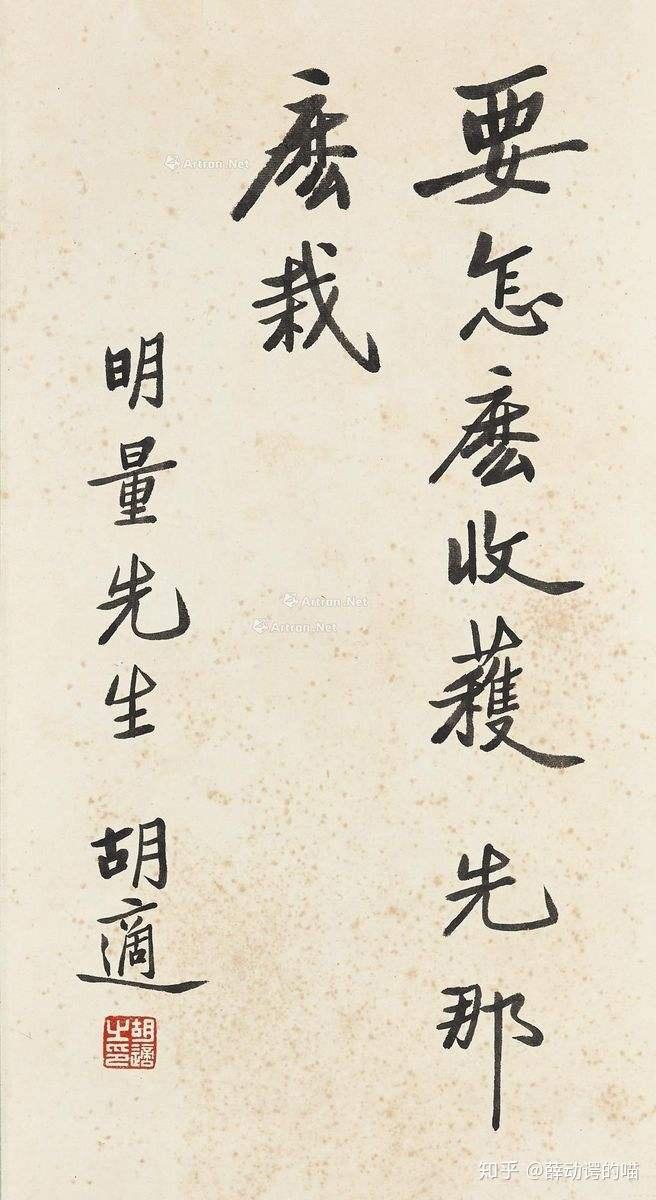 要怎麽收穫 先那
麽栽
明量先生 胡適
胡適之印
Artron.Net
Artron.Net
Artron.Net
知乎 @薛动谔的喵